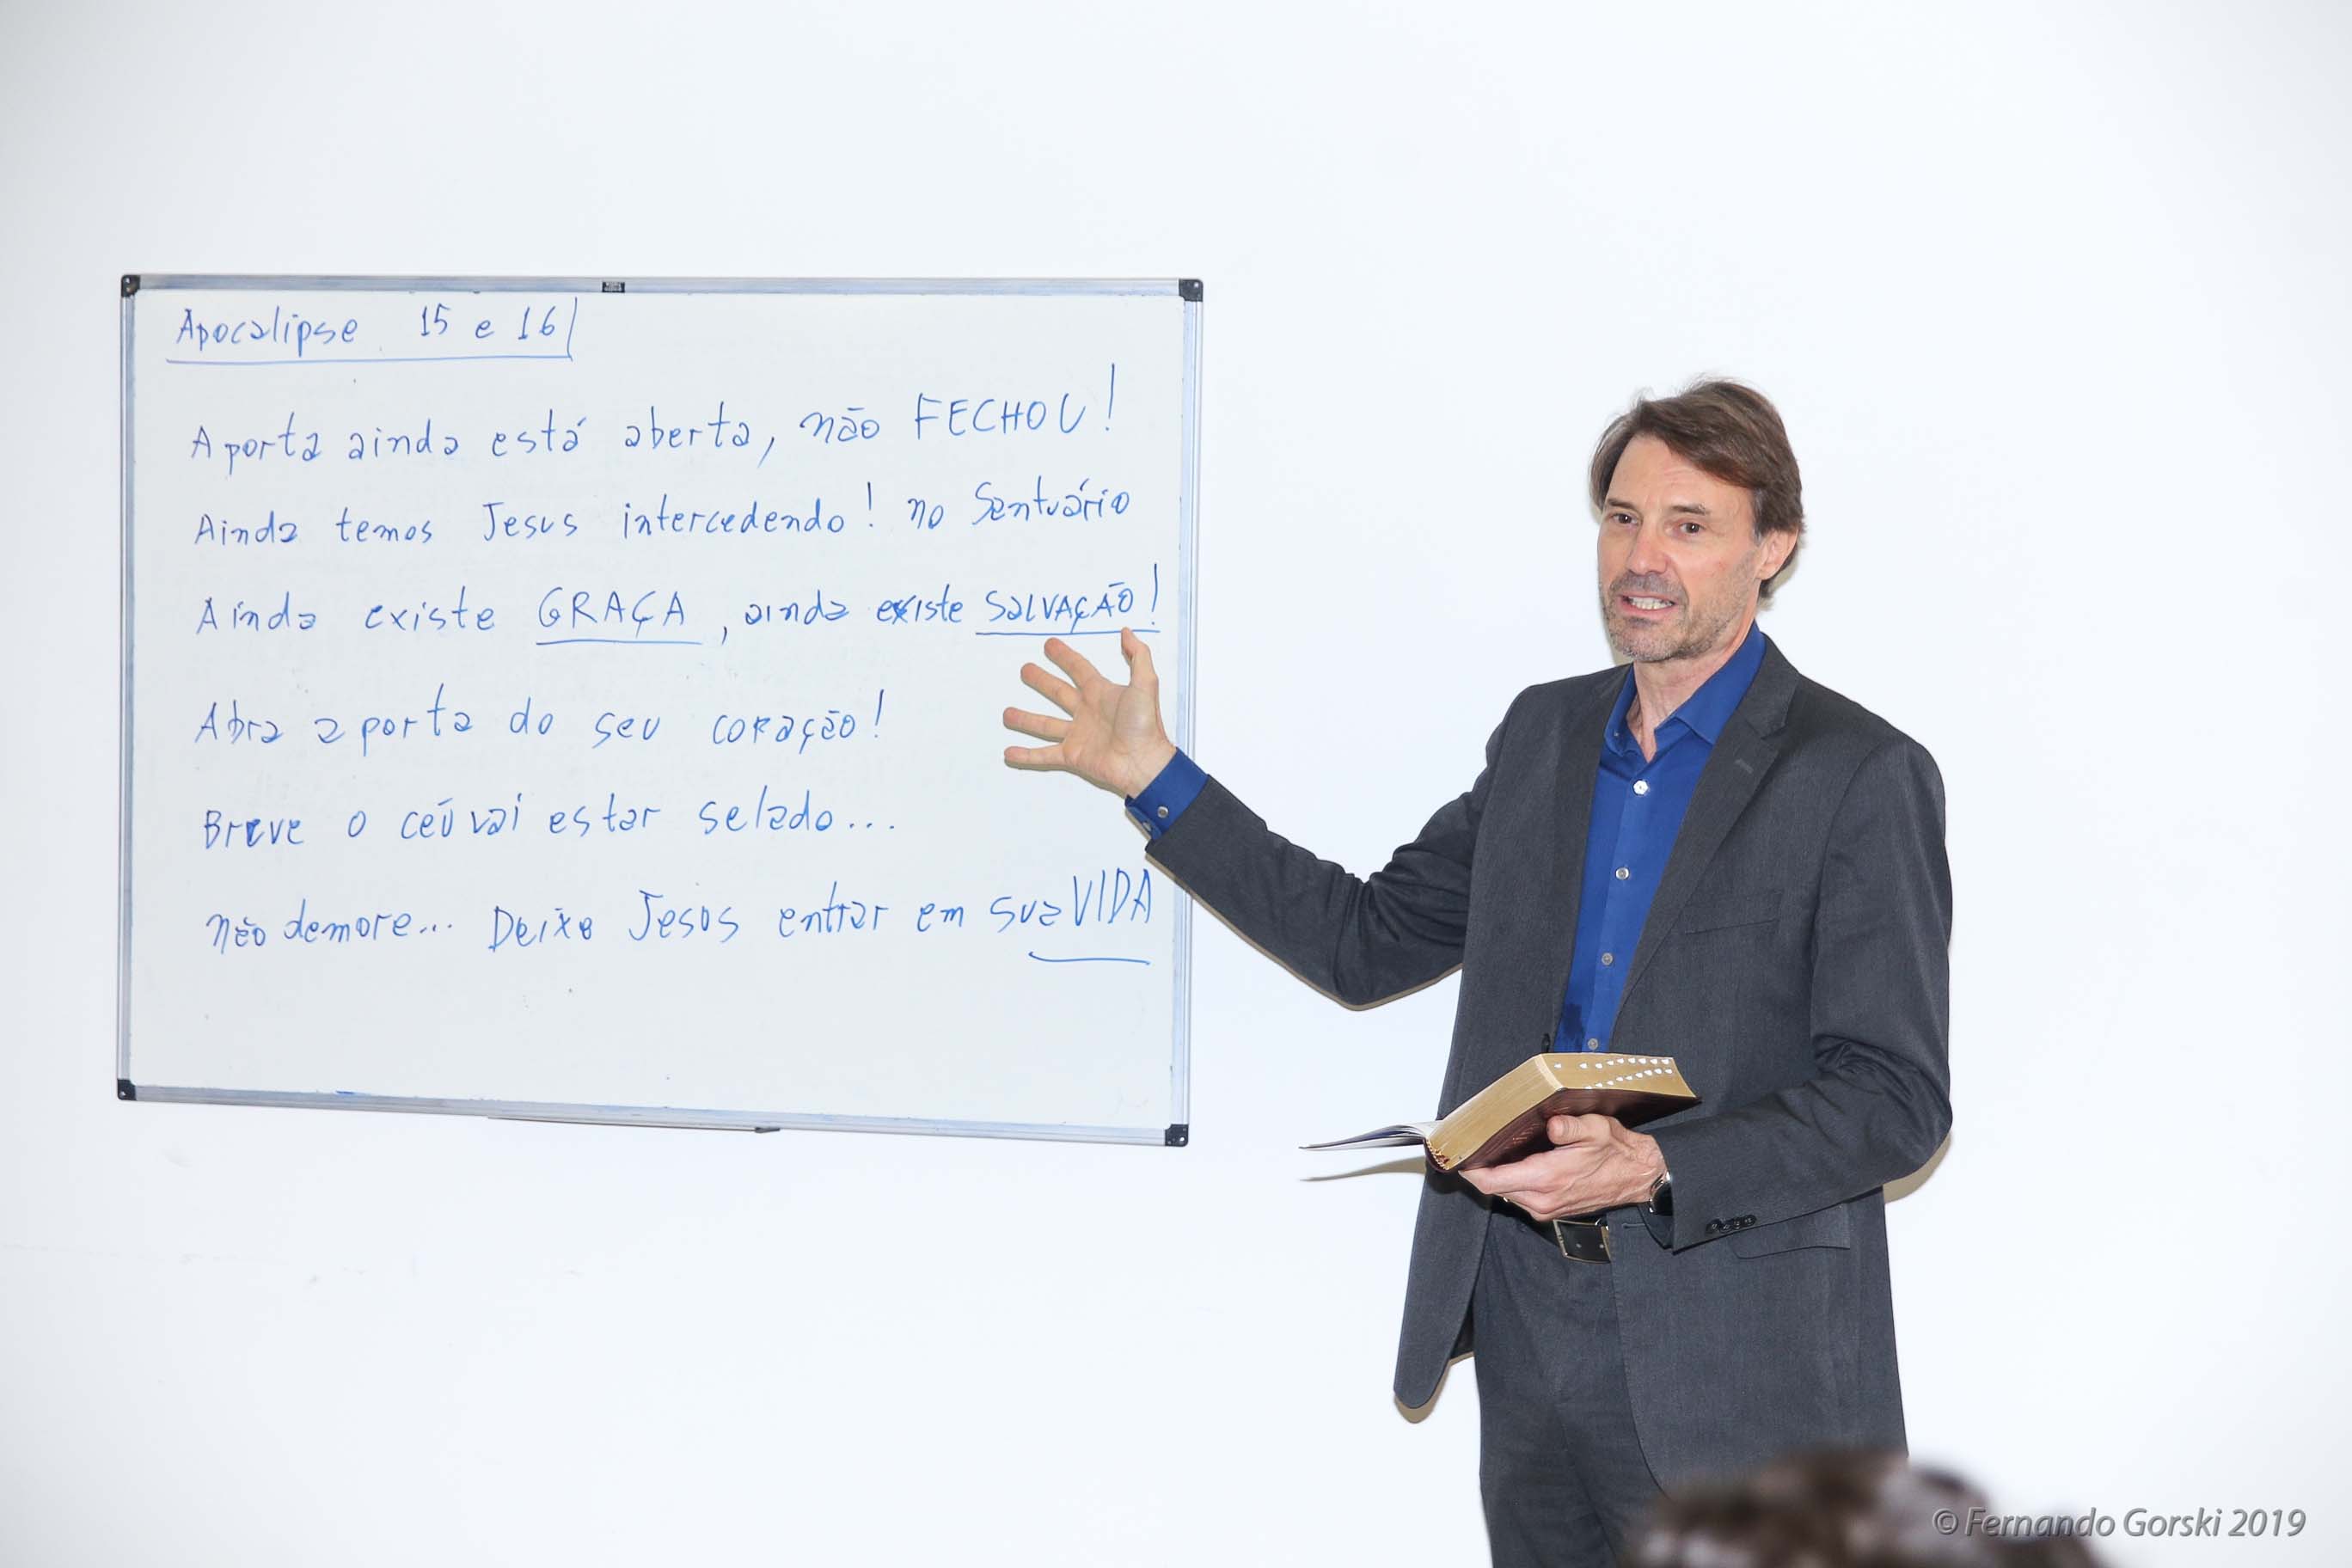 Apocalipse 15 e 16
A porta ainda está aberta, não FECHOU!
Ainda temos Jesus intercedendo! no Santuário
Ainda existe GRAÇA, ainda existe SALVAÇÃO!
Abra a porta do seu coração!
Breve o céu vai estar selado...
não demore... Deixe Jesus entrar em sua VIDA
© Fernando Gorski 2019